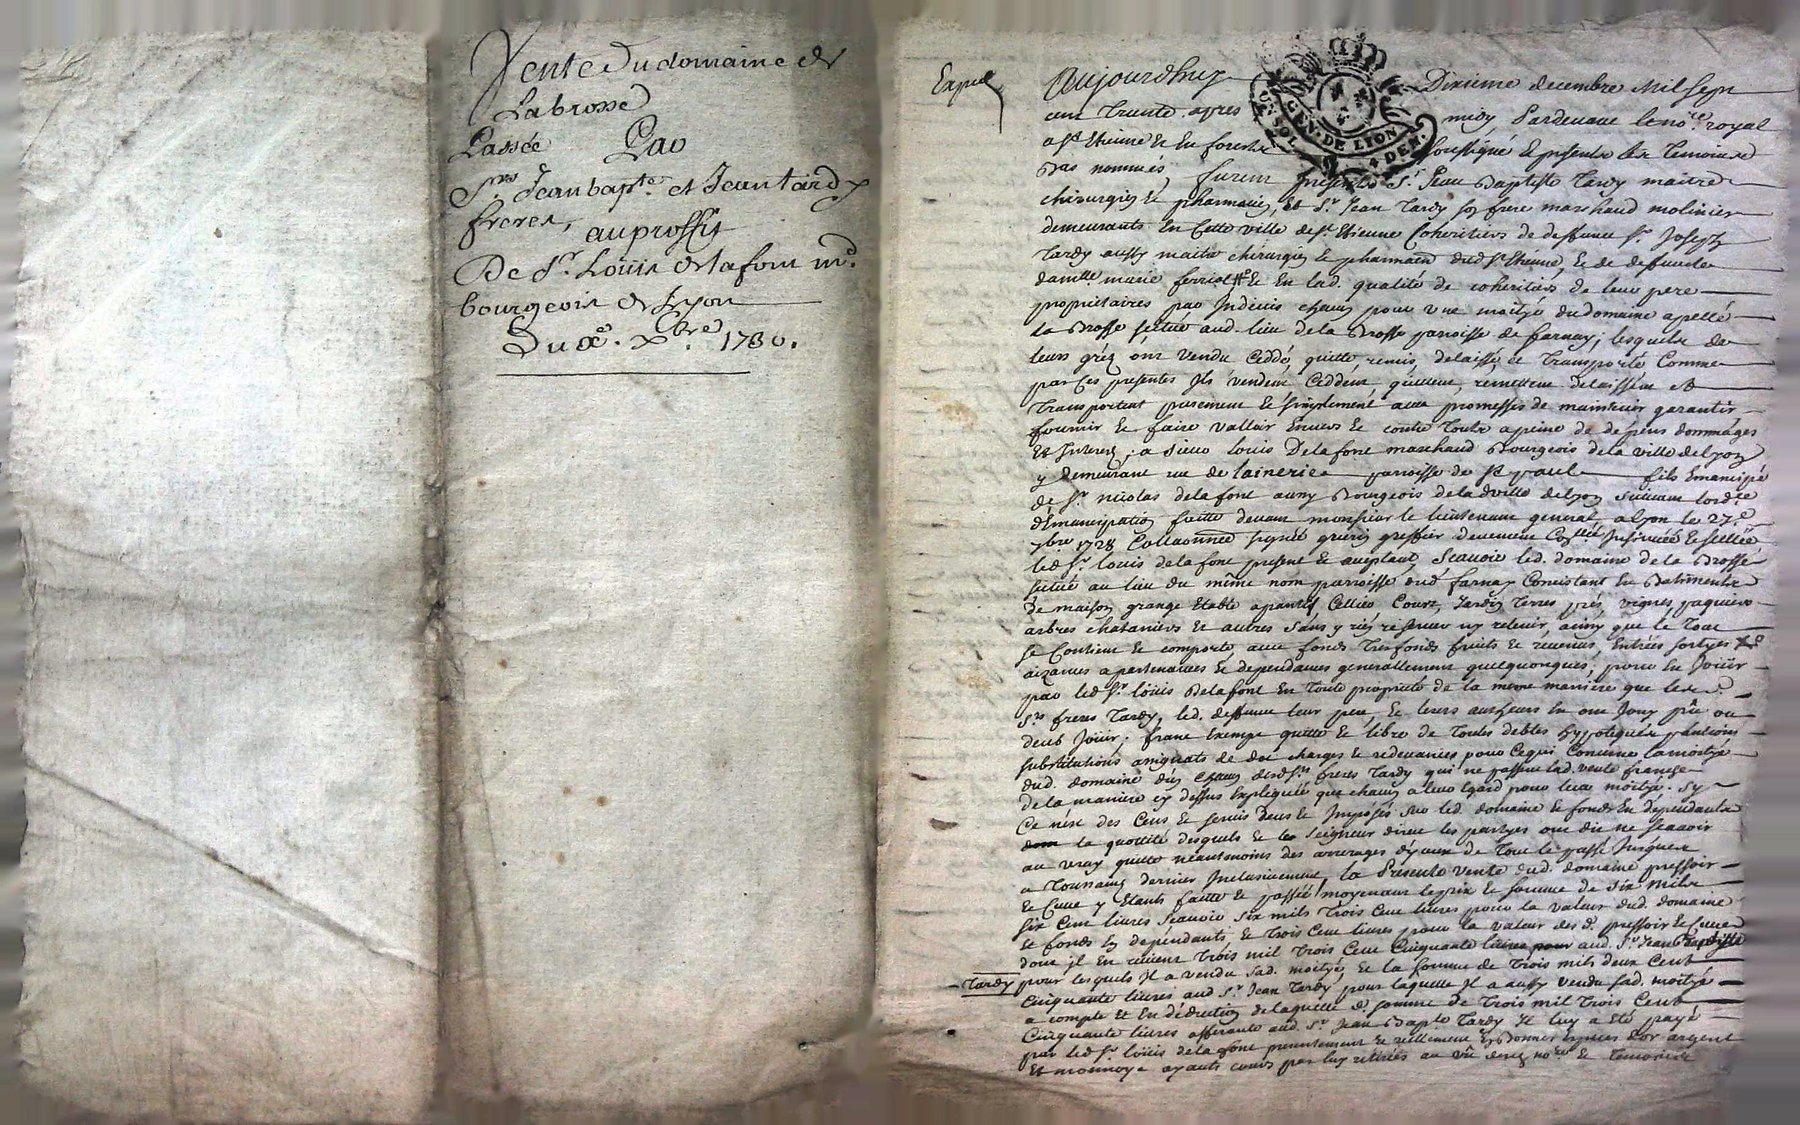 Vente Du domaine de
Labrosse
Passée Par
Srs Jean bapte et Jean tardy
freres,
au proffit
De Sr. Loüis Delafont md.
bourgeois de Lyon
Du Xe. Xbre 1730.
Aujourdhuy Dixieme decembre Mil Sept
cent Trente apres midy Pardevant le nore. royal
a St Etienne en forest soussigné & presents les Temoins
bas nommés, furent presents Sr. Jean Baptiste Tardy maitre
chirurgien & pharmacien, et Sr. Jean Tardy son frere marchand molinier
demeurants En Cette ville de St Etienne Coheritiers de deffunt Sr. Joseph
Tardy aussy maitre chirurgien & pharmacien dud St Etienne, & de defuncte
damlle marie ferriol & En lad. qualité de coheritiers de leur pere
proprietaires par Indivis chacun pour une moityé du domaine apellé
La Brosse scitué aud. lieu de la Brosse parroisse de farnay; lesquels de
leurs gréz ont vendu Ceddé, quitté, remis, delaissé, et Transporté Comme
par Ces presentes Ils vendent Ceddent, quittent, remettent delaissent et
Transportent purement & simplement avec promesses de maintenir garantir
fournir & faire valloir Envers & contre Touts a peine de dépens dommages
et Interets, a Sieur Louis Delafont marchand Bourgeois de la ville de Lyon
y demeurant rue de Lainerie parroisse de St paul fils Emancipé
de Sr. nicolas delafont aussy Bourgeois de lad ville de Lyon suivant lordce
dEmancipation faitte devant monsieur le lieutenant general a Lyon le 27e
7bre 1728 Collationnée signée greffier deuement Insinuée & scellée
led Sr. Louis delafont present & aceptant, Scavoir led. domaine de la Brosse
scitué au lieu du même nom parroisse dud farnay Concistant En Batiments
De maison grange Etable apantif Cellier Court, Jardin Terres prés, vignes paquiers
arbres chataniers & autres sans y rien reserver ny retenir, ainsy que le Tout
se Contient & comporte avec fonds Tresfonds fruits & revenus, Entrées sortyes
aizances apartenances & dependances generallement quelquonques, pour En Joüir
par led Sr. Loüis Delafont En Toute proprieté de la meme maniere que lesd.
Srs freres Tardy, led. deffunt leur pere & leurs autheurs En ont Jouy pû ou
deub Joüir; franc Exempt quitte & libre de Toutes debtes hypoteques pentions
substitutions de dot charges & redevances pour Cequi Concerne la moityé
dud. domaine d'un Chacun desd Srs. freres Tardy qui ne passent lad. vente franche
de la maniere cy dessus Expliquée que chacun a leur Egard pour leur moityé. Sy
Ce n'est des Cens & servis deus & Imposés sur led. domaine & fonds En dependants
la quotitté desquels & le Seigneur direct les partyes ont dit ne scavoir
au vray quitte néantmoins des arrerages d'yceux de Tout le passé Jusques
a Toussaints dernier Inclusivement, La Presente vente dud. domaine pressoir
& Cuve y Etants faitte & passée moyenant le prix & somme de six mils
six Cent livres Scavoir six mils Trois Cent livres pour la valeur dud. domaine
& fonds En dependants, & Trois Cent livres pour la valeur des d. pressoir & Cuve
dont il En revient Trois mil Trois Cent Cinquante livres aud. Sr Jean Baptiste
Tardy pour lesquels Il a vendu sad. moityé, & la somme de Trois mils deux Cent
Cinquante livres aud Sr. Jean Tardy pour laquelle Il a aussy vendu sad. moityé
a compte Et En deduction de laquelle d. somme de Trois mil Trois Cent
Cinquante livres afferante aud. Sr Jean Bapte Tardy Il luy a Eté payé
par led Sr. Loüis delafont presentement & reellement En bonnes Especes d'or argent
Et monnoye ayants cours par luy retirées au vû desd. nore & temoins
GEN. DE LYON
4 DEN.